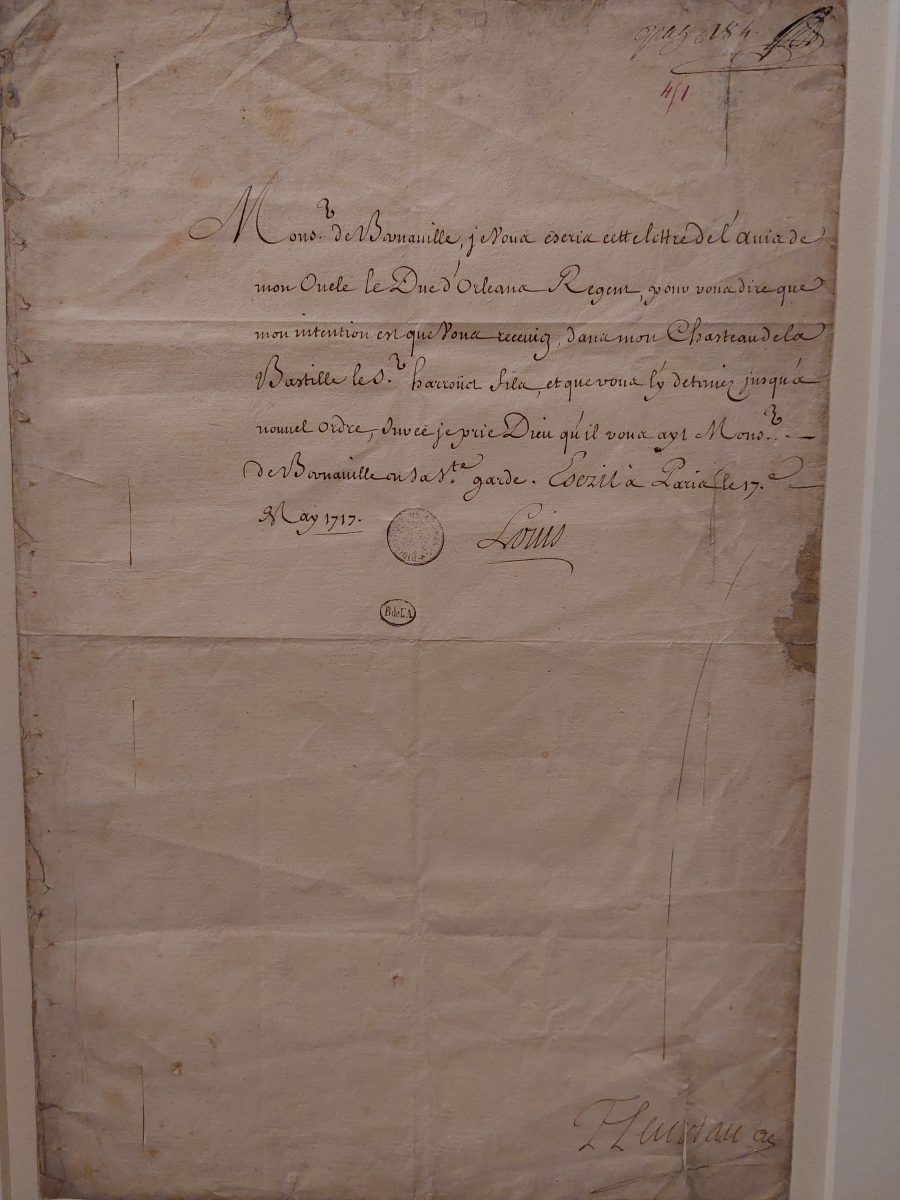 pag 184.
451
Mons.r de Bernaville, je Vous écris cette lettre de l'avis de
mon Oncle le Duc d'Orleans Regent, pour vous dire que
mon intention est que Vous receviez, dans mon Chasteau de la
Bastille le S.r harroüet fils, et que vous l'y deteniez jusqu'à
nouvel ordre, Sur ce je prie Dieu qu'il vous ayt Mons.r
de Bernaville en sa S.te garde. Escrit à Paris le 17.e
May 1717. Louis
B de L'A